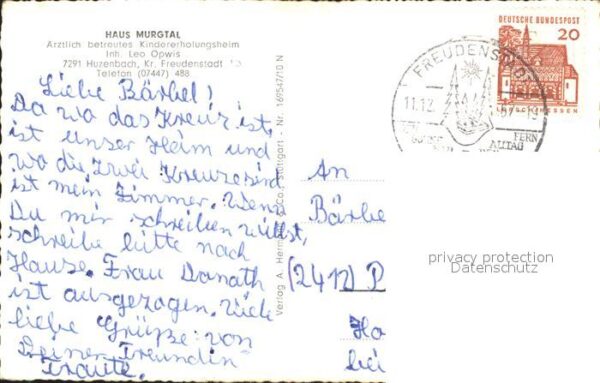 HAUS MURGTAL
Ärztlich betreutes Kindererholungsheim
Inh. Leo Opwis
7291 Huzenbach, Kr. Freudenstadt
Telefon (07447) 488
Liebe Bärbel!
Da wo das Kreuz ist,
ist unser Heim und
wo die zwei Kreuze sind
ist mein Zimmer. Wenn
Du mir schreiben willst,
schreibe bitte nach
Hause. Frau Donath
ist ausgezogen. Viele
liebe Grüße von
Deiner Freundin
Traute.
Verlag A. Herm & Co., Stuttgart - Nr. 169547/10 N
FREUDENSTADT
11.12.
FERN
ALLTAG
DEUTSCHE BUNDESPOST
20
An
Bärbe
(2412) P
Ho
bei
privacy protection
Datenschutz